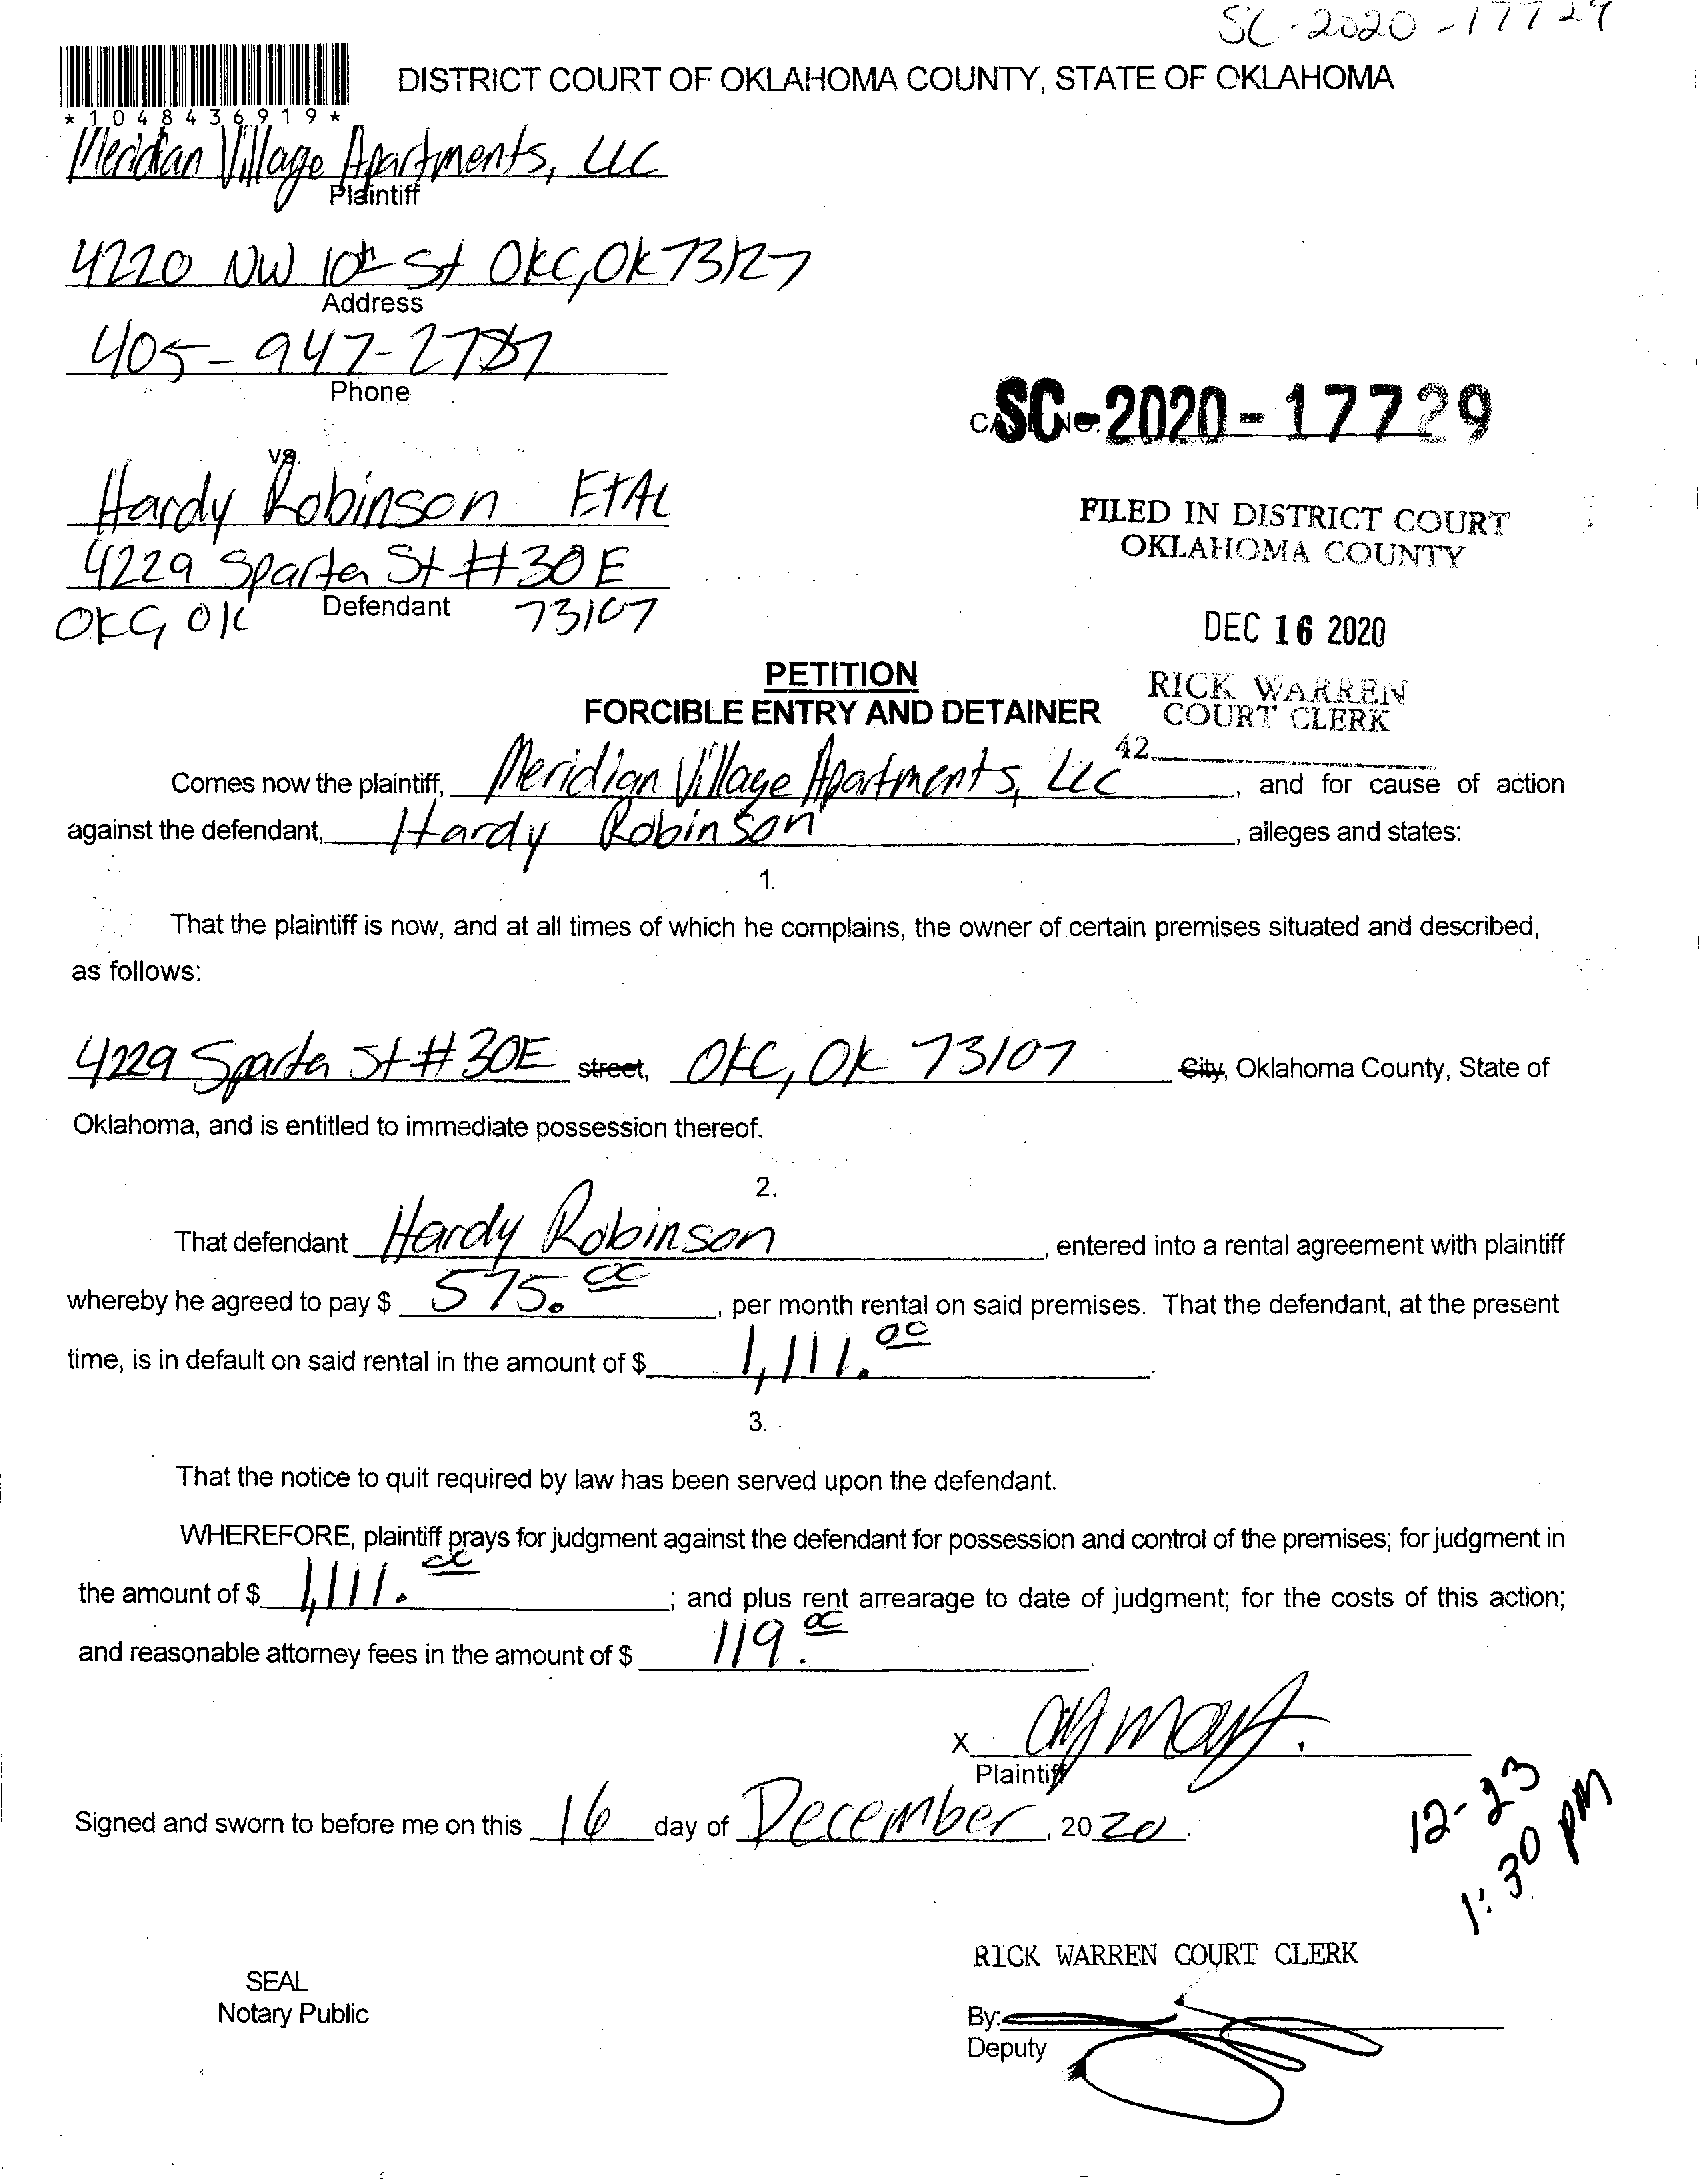 SC-2020-17729
DISTRICT COURT OF OKLAHOMA COUNTY, STATE OF OKLAHOMA
*1048436919*
Meridian Village Apartments, LLC
Plaintiff
4220 NW 10th St OKC, OK 73127
Address
405-947-2787
Phone
SC-2020-17729
vs.
Hardy Robinson ETAL
4229 Sparta St #30E
Defendant
OKC, OK 73107
FILED IN DISTRICT COURT
OKLAHOMA COUNTY
DEC 16 2020
PETITION
FORCIBLE ENTRY AND DETAINER
RICK WARREN
COURT CLERK
42
Comes now the plaintiff, Meridian Village Apartments, LLC, and for cause of action
against the defendant, Hardy Robinson, alleges and states:
1.
That the plaintiff is now, and at all times of which he complains, the owner of certain premises situated and described,
as follows:
4229 Sparta St #30E street, OKC, OK 73107 City, Oklahoma County, State of
Oklahoma, and is entitled to immediate possession thereof.
2.
That defendant Hardy Robinson, entered into a rental agreement with plaintiff
whereby he agreed to pay $ 575.00, per month rental on said premises. That the defendant, at the present
time, is in default on said rental in the amount of $ 1,111.00
3.
That the notice to quit required by law has been served upon the defendant.
WHEREFORE, plaintiff prays for judgment against the defendant for possession and control of the premises; for judgment in
the amount of $ 1,111.00; and plus rent arrearage to date of judgment; for the costs of this action;
and reasonable attorney fees in the amount of $ 119.00
x
Plaintiff
Signed and sworn to before me on this 16 day of December, 2020.
12-23
1:30 pm
RICK WARREN COURT CLERK
SEAL
Notary Public
By:
Deputy